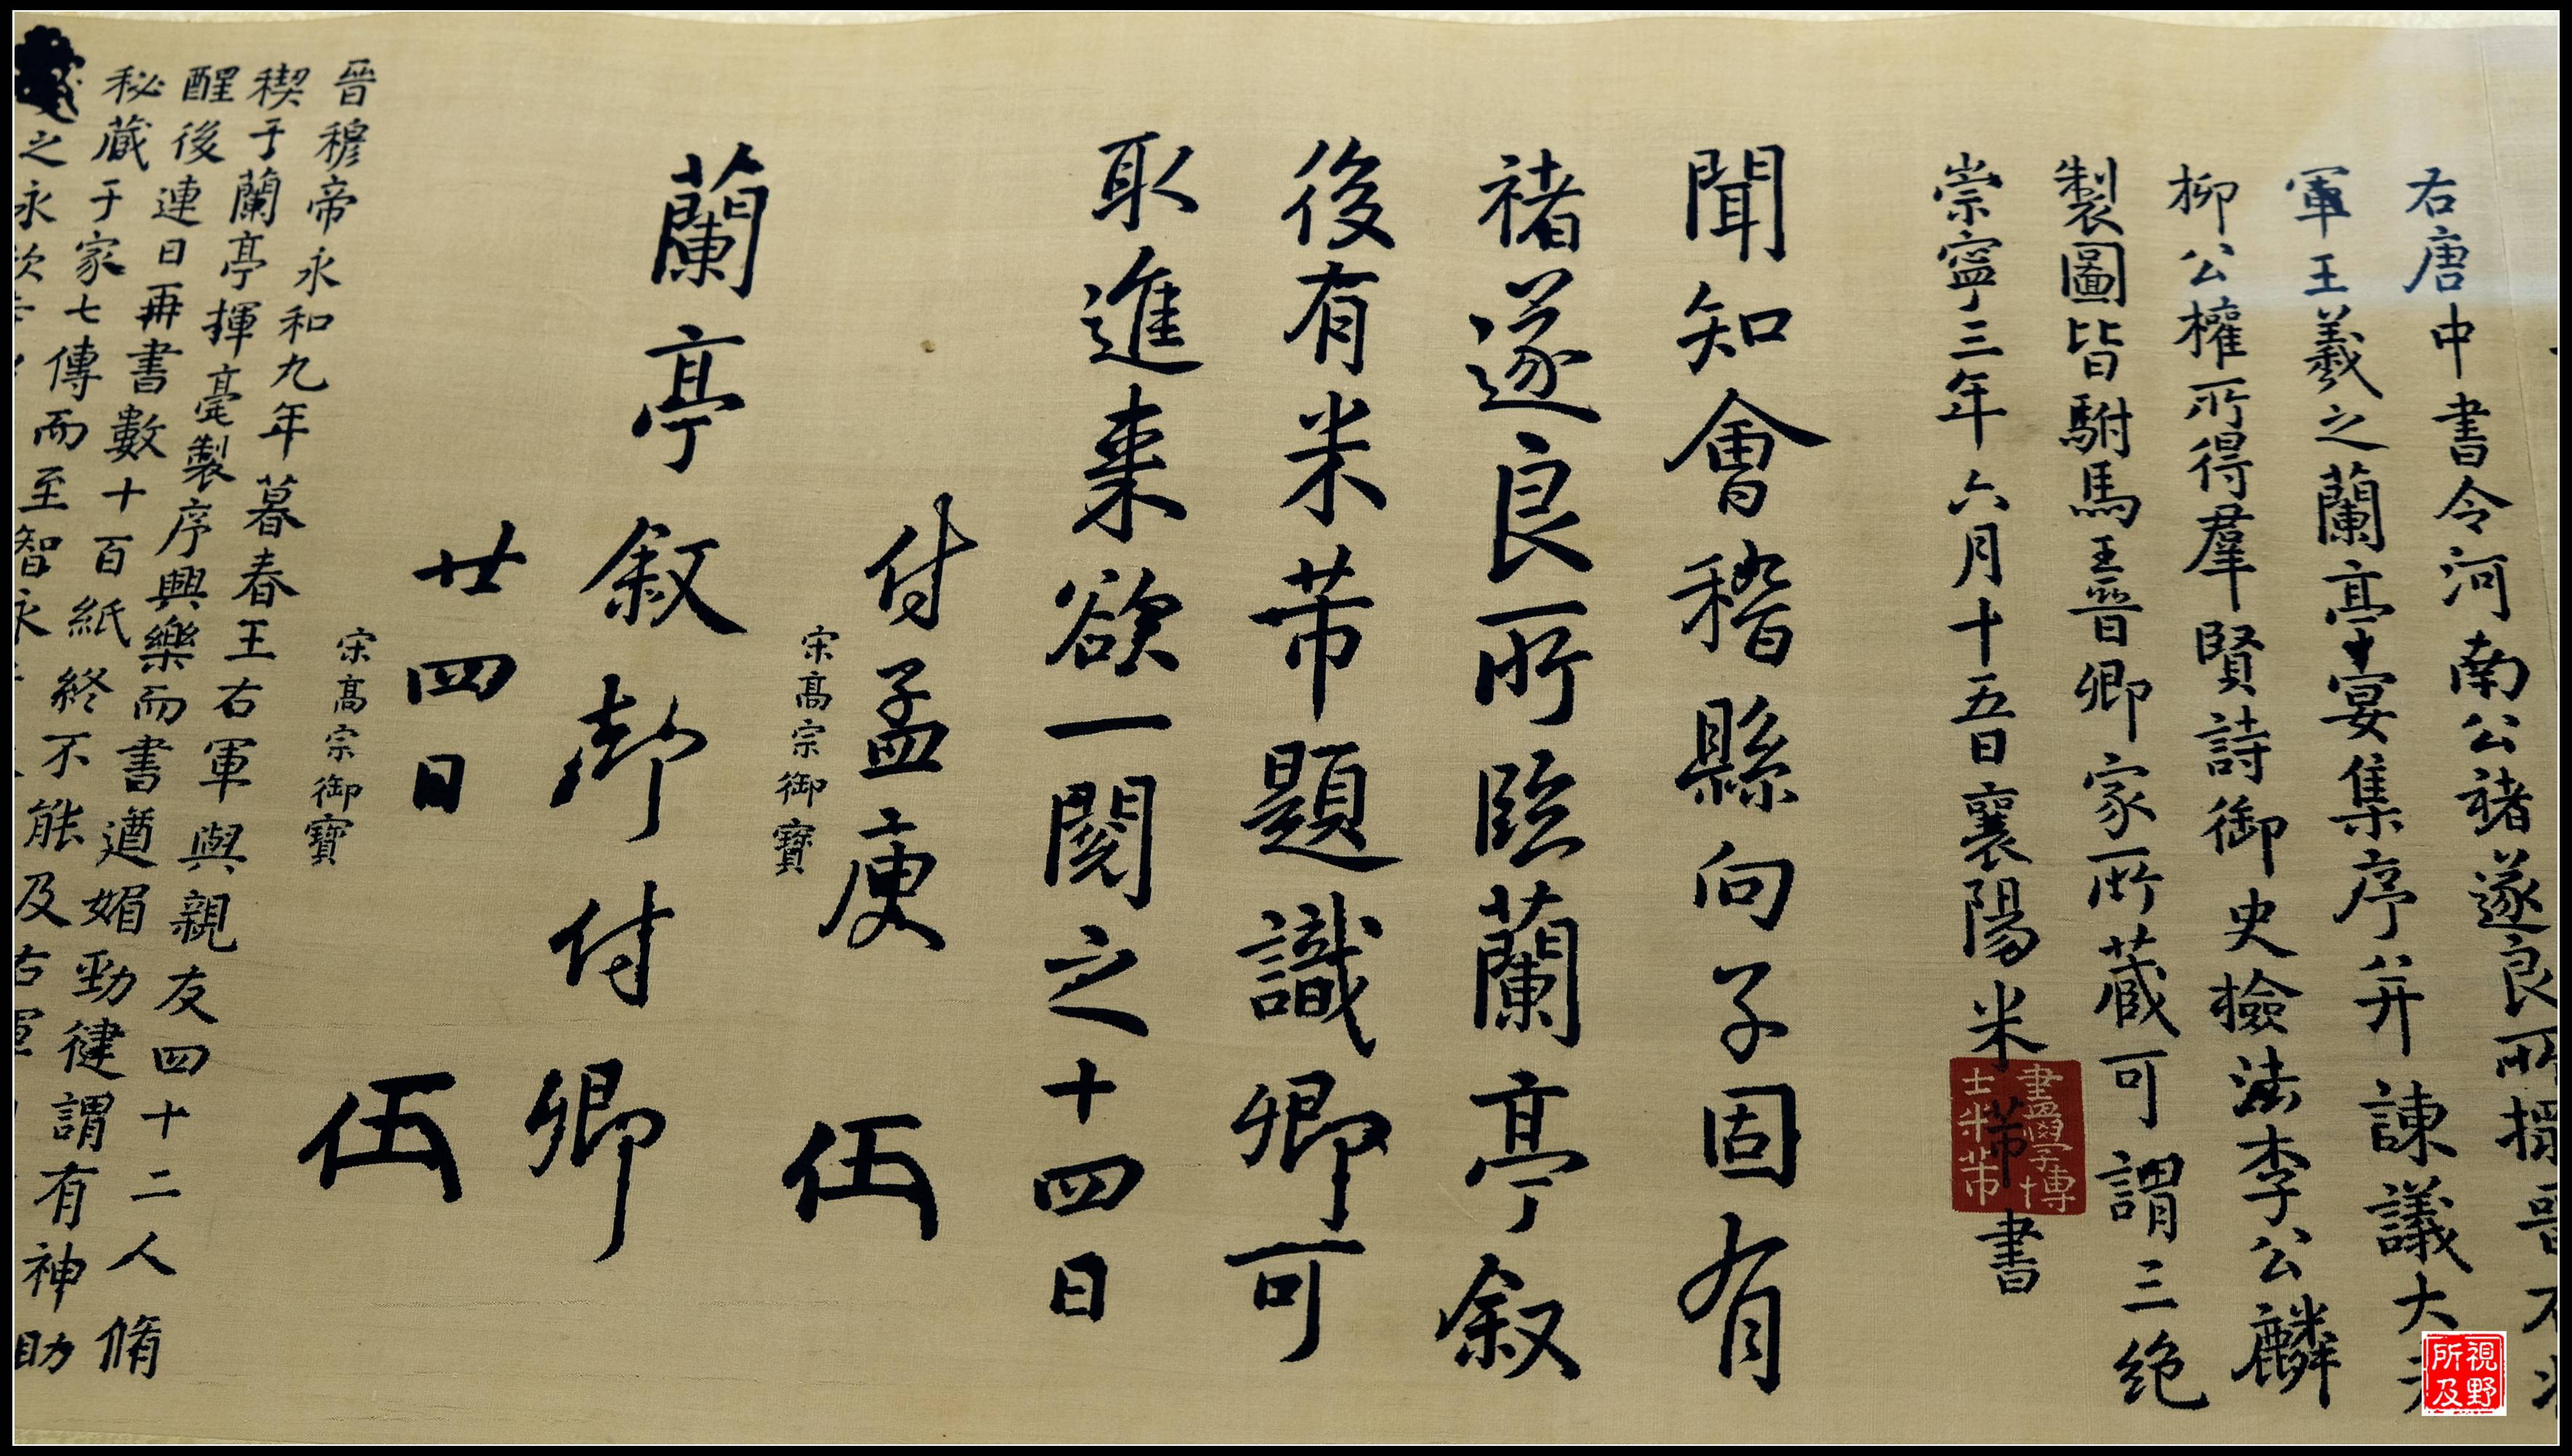 右唐中書令河南公褚遂良所摸
軍王羲之蘭亭宴集序并諫議大
柳公權所得羣賢詩御史檢法李公麟
製圖皆駙馬王晉卿家所藏可謂三絕
崇寧三年六月十五日襄陽米芾書
畫學博
士米芾
聞知會稽縣向子固有
褚遂良所臨蘭亭叙
後有米芾題識卿可
取進來欲一閱之十四日
付孟庾
宋高宗御寶
伍
蘭亭叙却付卿
廿四日
宋高宗御寶
伍
晉穆帝永和九年暮春王右軍與親友四十二人脩
禊于蘭亭揮毫製序興樂而書遒媚勁健謂有神助
醒後連日再書數十百紙終不能及右軍
秘藏于家七傳而至智永
之永
視野
所及